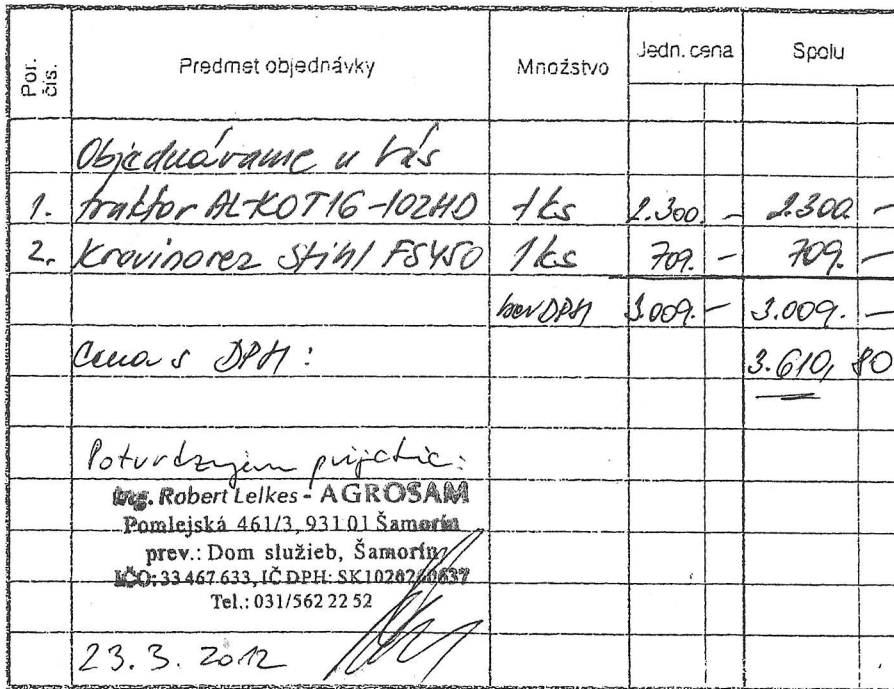 Por. čís. Predmet objednávky Množstvo Jedn. cena Spolu
Objednávame u Vás
1. traktor AL-KO T16-102HD 1ks 2.300.- 2.300.-
2. Krovinorez Stihl FS450 1ks 709.- 709.-
bez DPH 3.009.- 3.009.-
Cena s DPH: 3.610,80
Potvrdzujem prijatie:
Ing. Robert Lelkes - AGROSAM
Pomlejská 461/3, 931 01 Šamorín
prev.: Dom služieb, Šamorín
IČO: 33 467 633, IČ DPH:
Tel.: 031/562 22 52
23.3.2012